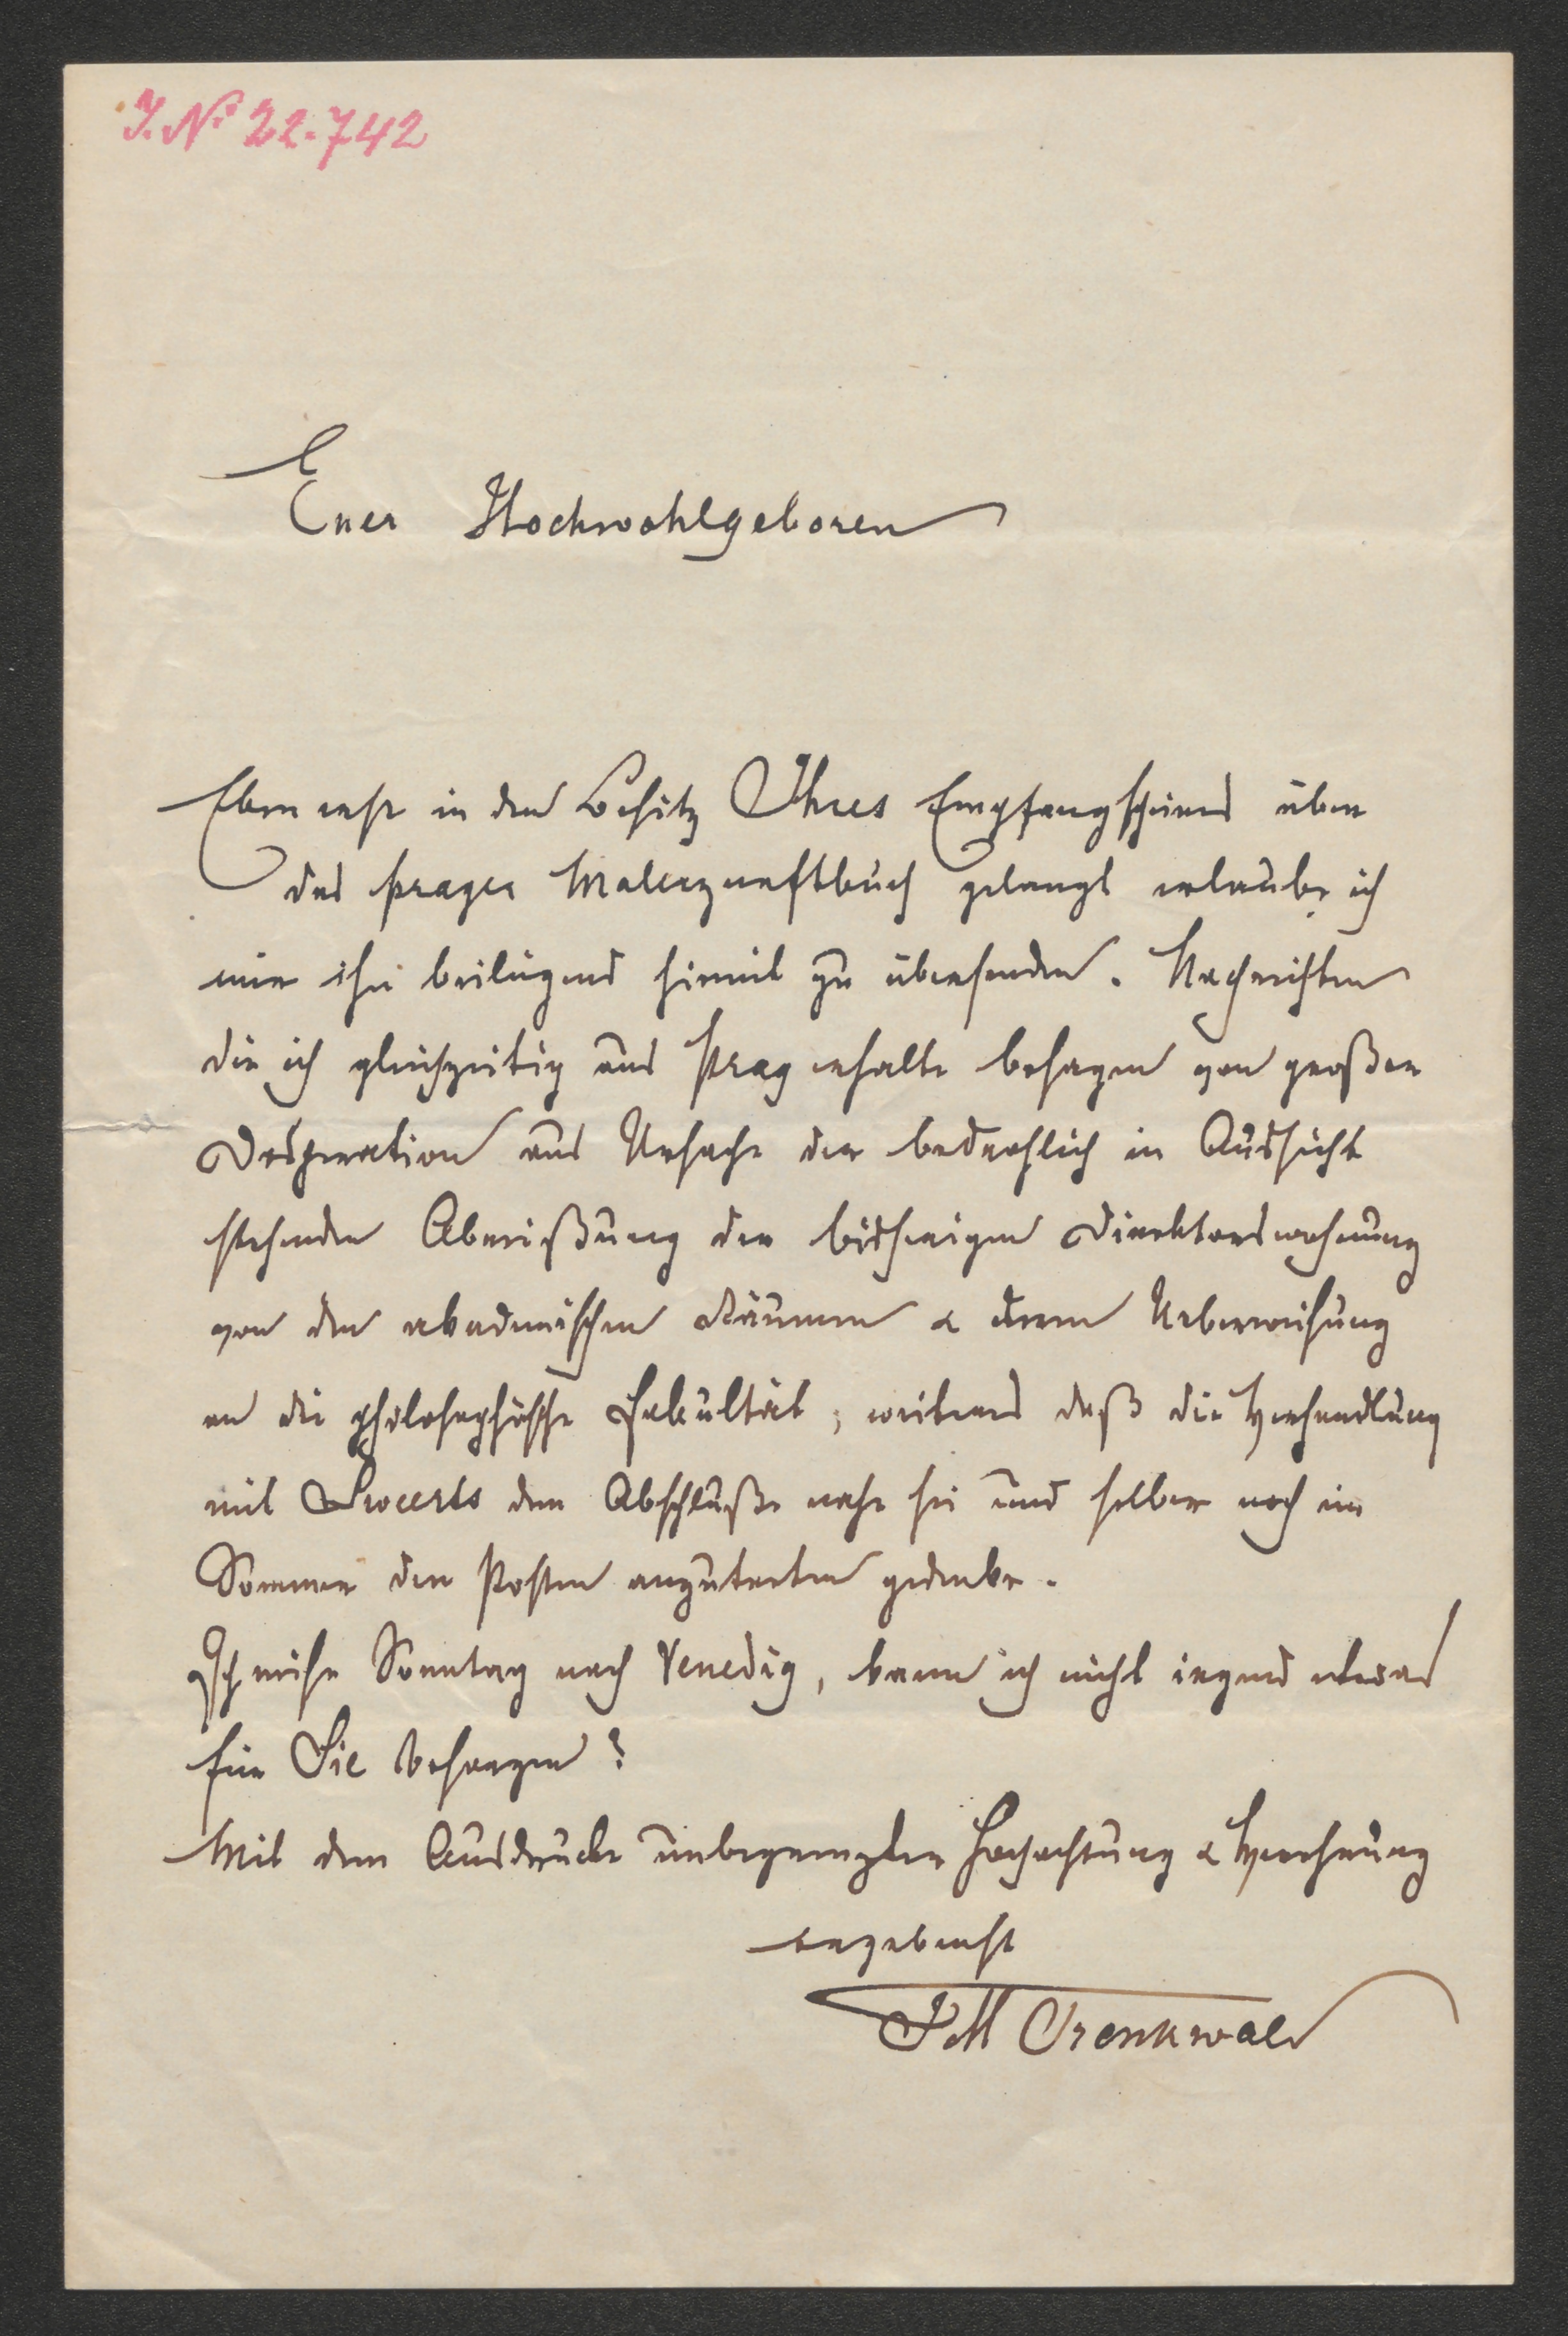 J. No 22.742
Euer Hochwohlgeboren
Eben erst in den Besitz Ihres Empfangscheines über
das prager Malerzunftbuch gelangt erlaube ich
mir ihn beiliegend hiemit zu übersenden. Nachrichten
die ich gleichzeitig aus Prag erhalte besagen von großer
Desperation aus Ursache der bedrohlich in Aussicht
stehenden Abreißung der bisherigen Direktorswohnung
von den akademischen Räumen & deren Ueberweisung
an die philosophische Fakultät, weiters daß die Verhandlung
mit Swerts dem Abschluße nahe sei und selber noch im
Sommer den Posten anzutreten gedenke.
Ich reise Sonntag nach Venedig, kann ich nicht irgend etwas
für Sie besorgen?
Mit dem Ausdrucke unbegrenzter Hochachtung & Verehrung
ergebenst
JM Trenkwald